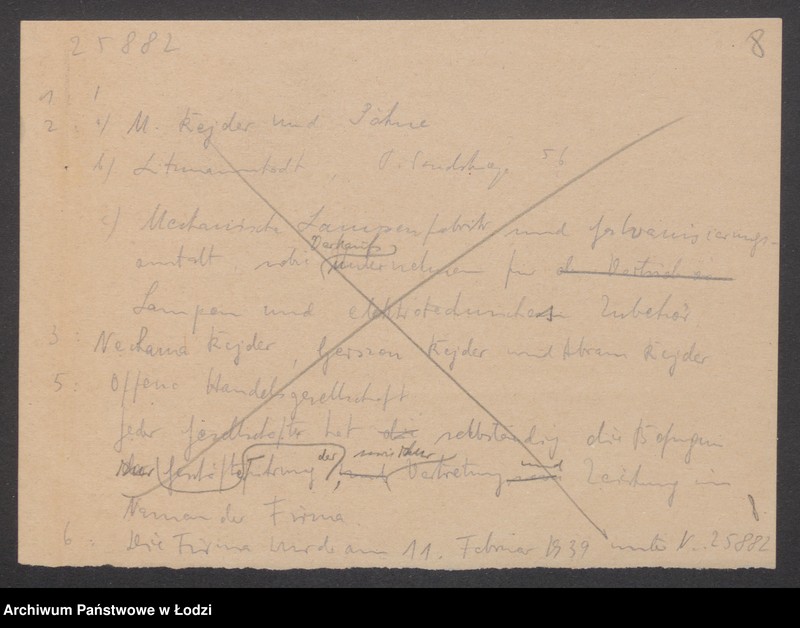 25882
8
1 1
2: a) M. Kejder und Söhne
b) Litzmannstadt, 56
c) Mechanische Lampenfabrik und Galvanisierungs-
anstalt, Verkaufs
Unternehmen für
Lampen und elektrotechnischen Zubehör
3: Nechama Kejder, Gerszon Kejder und Abram Kejder
5: Offene Handelsgesellschaft
Jeder Gesellschafter hat die selbständig die Befugnis
der sowie der
Geschäftsführung, Vertretung und Zeichnung im
Namen der Firma.
6: Die Firma wurde am 11. Februar 1939 unter N. 25882
Archiwum Państwowe w Łodzi